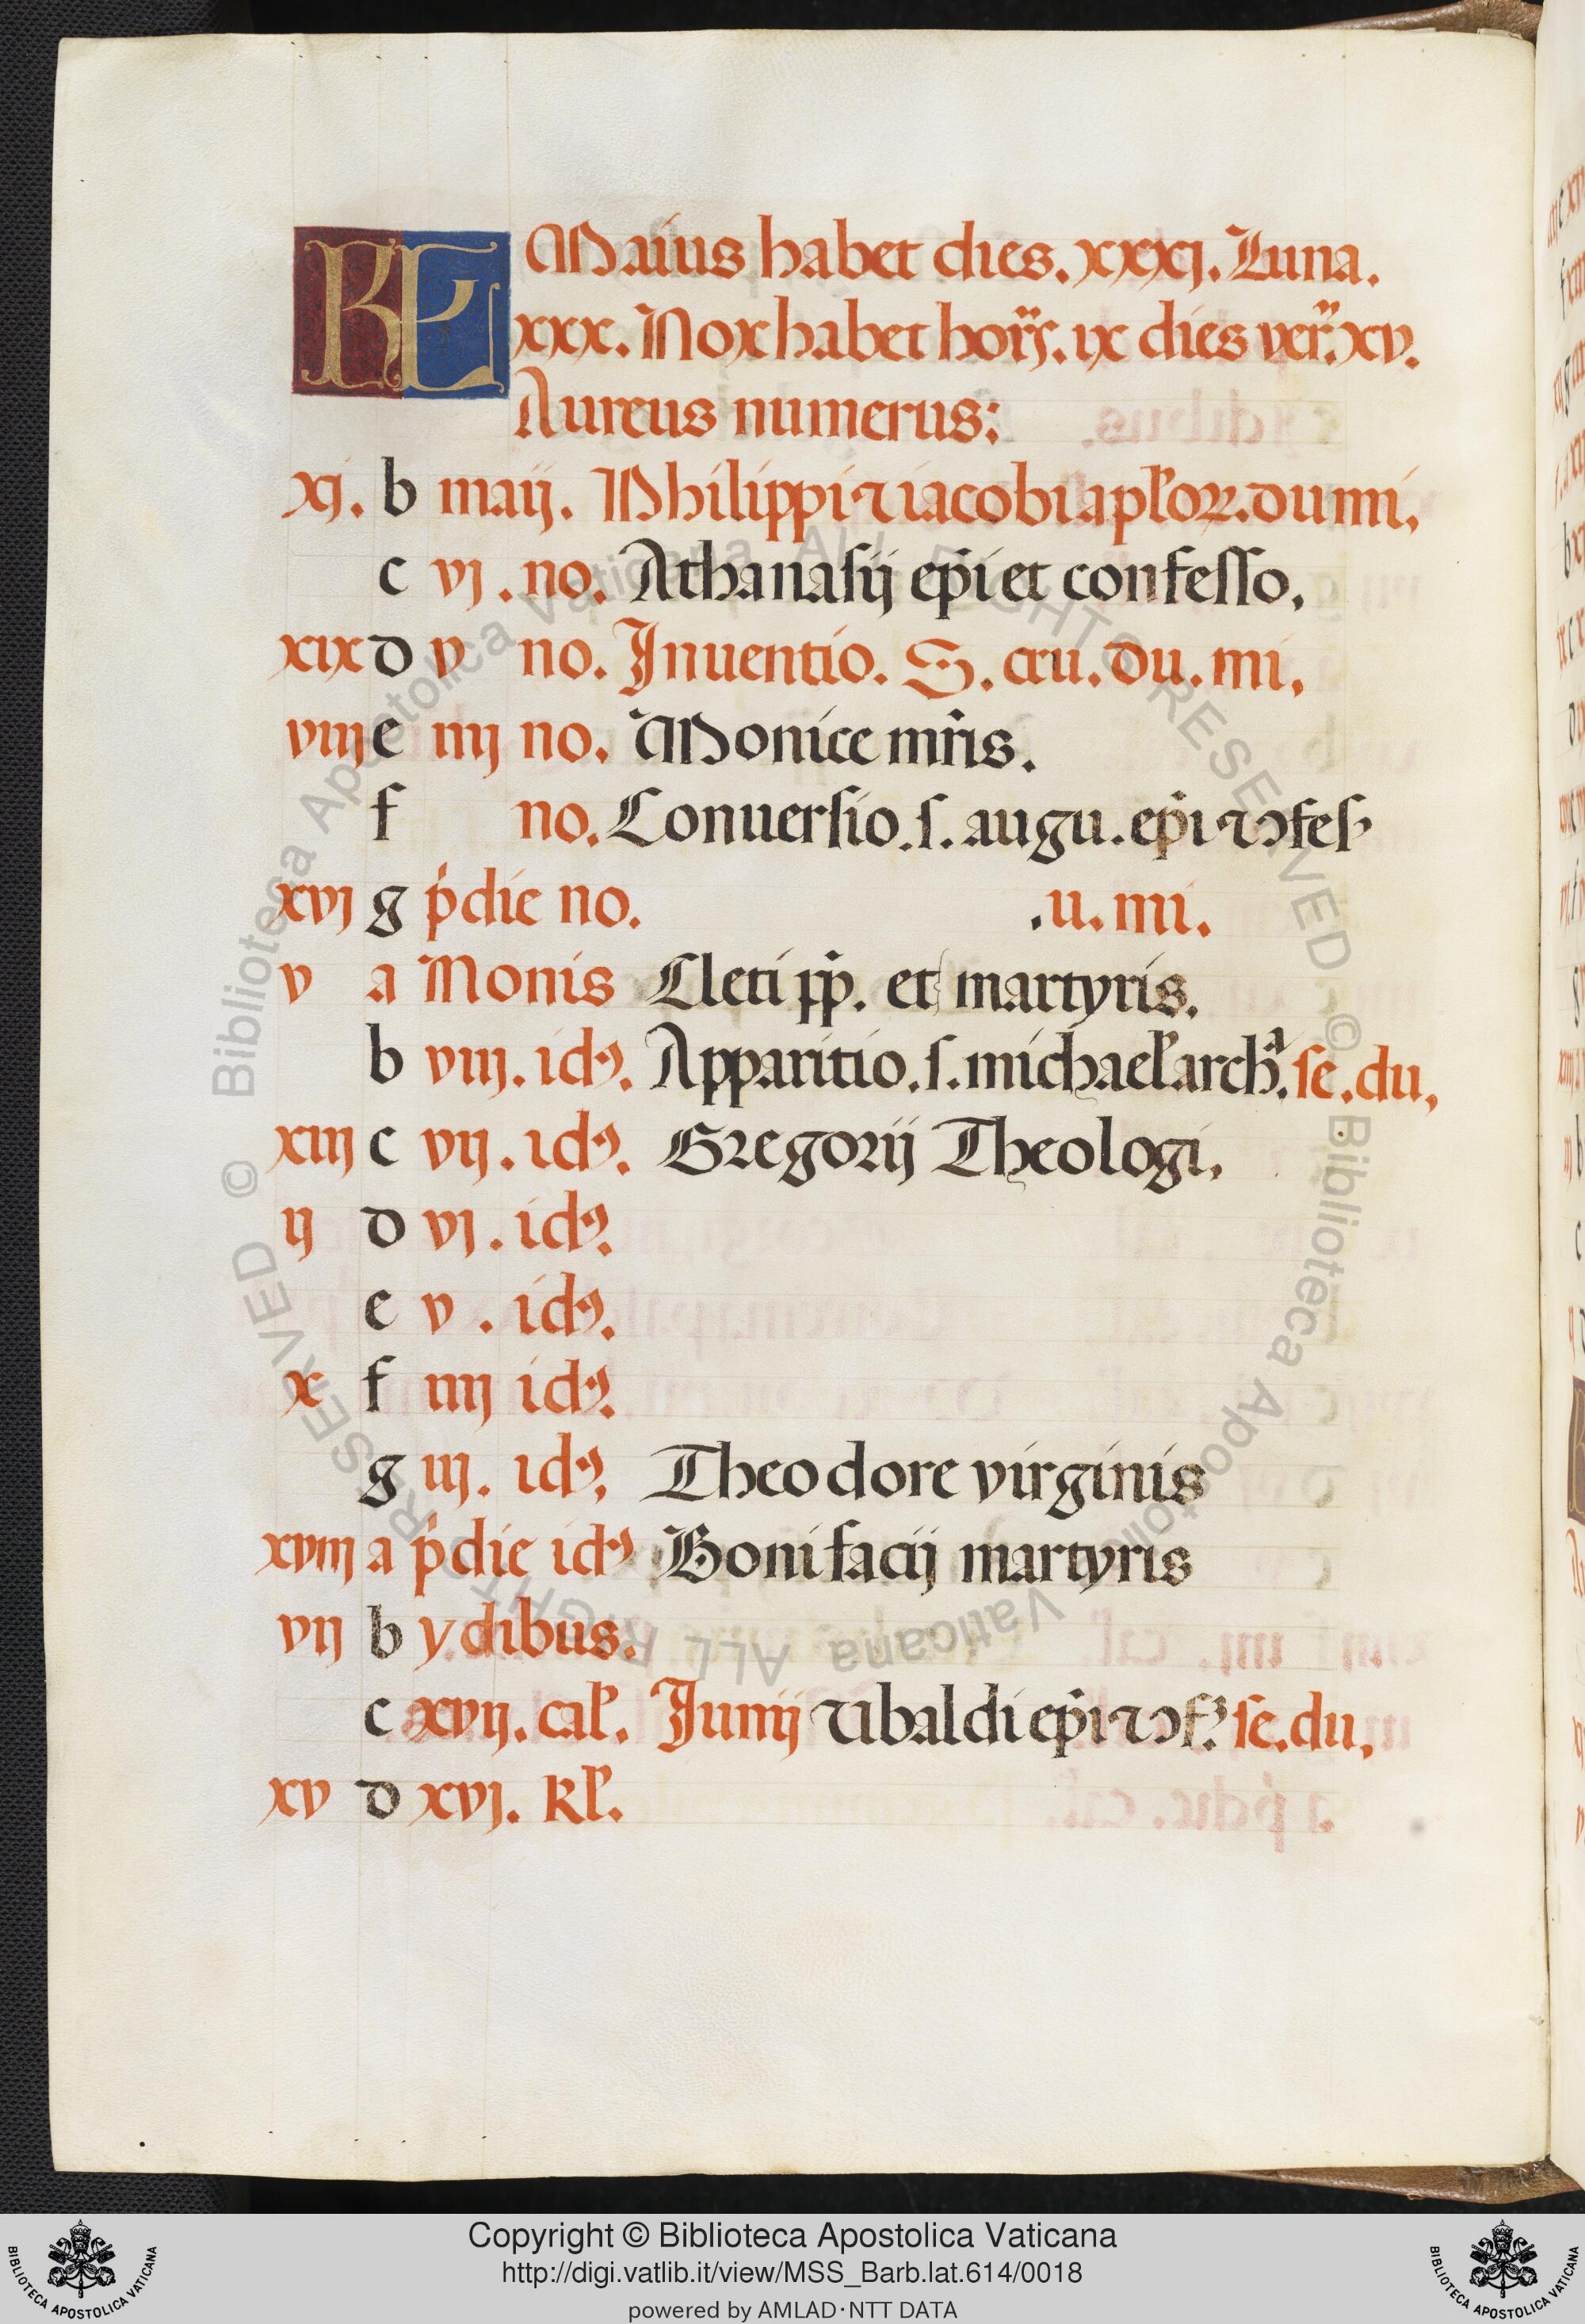 KL Maius habet dies. xxxj. Luna.
xxx. Nox habet hors. ix dies ver. xv.
Aureus numerus:
xj. b maij. Philippi ⁊ iacobi aplorꝝ. du mi,
c vj. no. Athanasij epi et confesso,
xix d v no. Inuentio. S. cru. du. mi,
viij e iiij no. Monice mris.
f no. Conuersio. s. augu. epi ⁊ ↄfes
xvj g pdie no. .u. mi.
v a Nonis Cleti pp. et martyris.
b viij. idꝰ. Apparitio. s. michael archa. se. du,
xiij c vij. idꝰ. Gregorij Theologi,
ij d vj. idꝰ.
e v. idꝰ.
x f iiij idꝰ.
g iij. idꝰ, Theodore virginis
xviij a pdie idꝰ Bonifacij martyris
vij b ydibus.
c xvij. cal. Junij Ubaldi epi ⁊ ↄf. se. du,
xv d xvj. kl.
© Biblioteca Apostolica Vaticana ALL RIGHTS RESERVED © Biblioteca Apostolica Vaticana ALL RIGHTS RESERVED
Copyright © Biblioteca Apostolica Vaticana
http://digi.vatlib.it/view/MSS_Barb.lat.614/0018
powered by AMLAD·NTT DATA
BIBLIOTECA APOSTOLICA VATICANA
BIBLIOTECA APOSTOLICA VATICANA